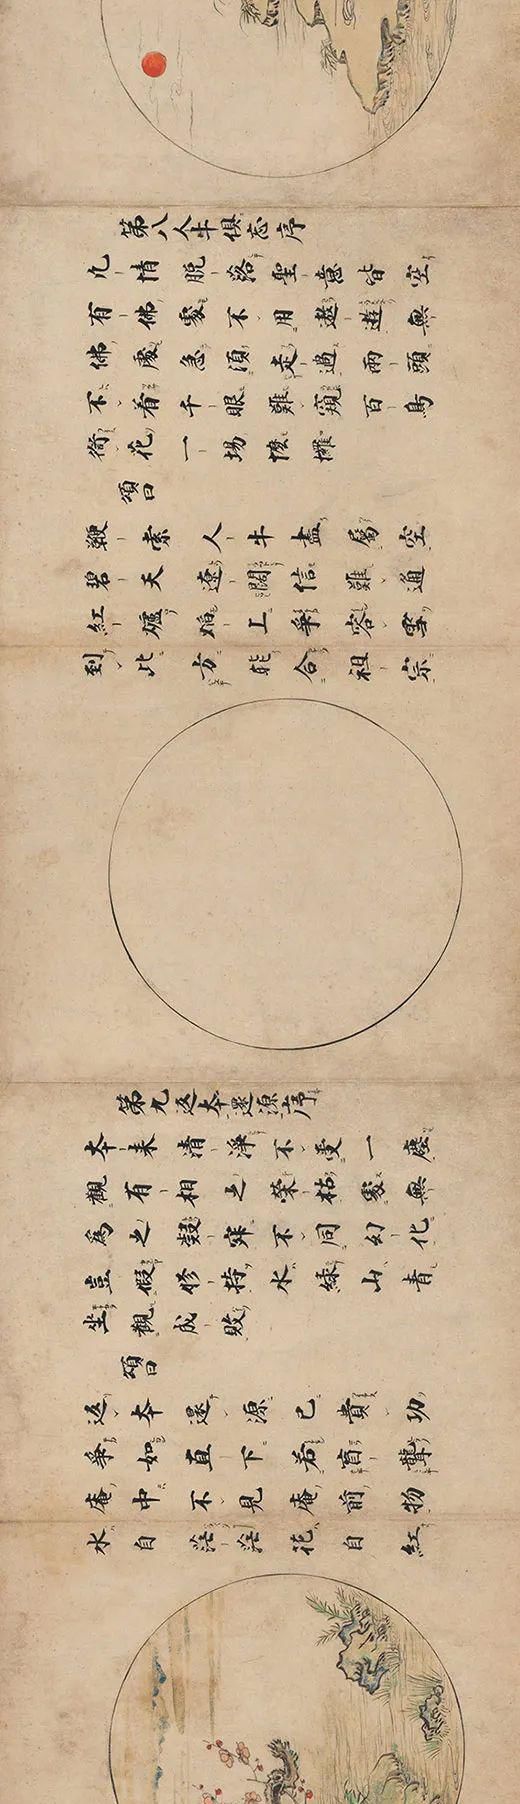 第八人牛俱忘序
凡情脱落聖意皆空
有佛處不用遨遊無
佛處急須走過兩頭
不着千眼難窺百鳥
銜花一場懡㦬
頌曰
鞭索人牛盡屬空
碧天遼闊信難通
紅爐焰上爭容雪
到此方能合祖宗
第九返本還源序
本来清淨不受一塵
觀有相之榮枯處無
為之凝寂不同幻化
豈假修持水緑山青
坐觀成敗
頌曰
返本還源已費功
爭如直下若盲聾
庵中不見庵前物
水自茫茫花自紅